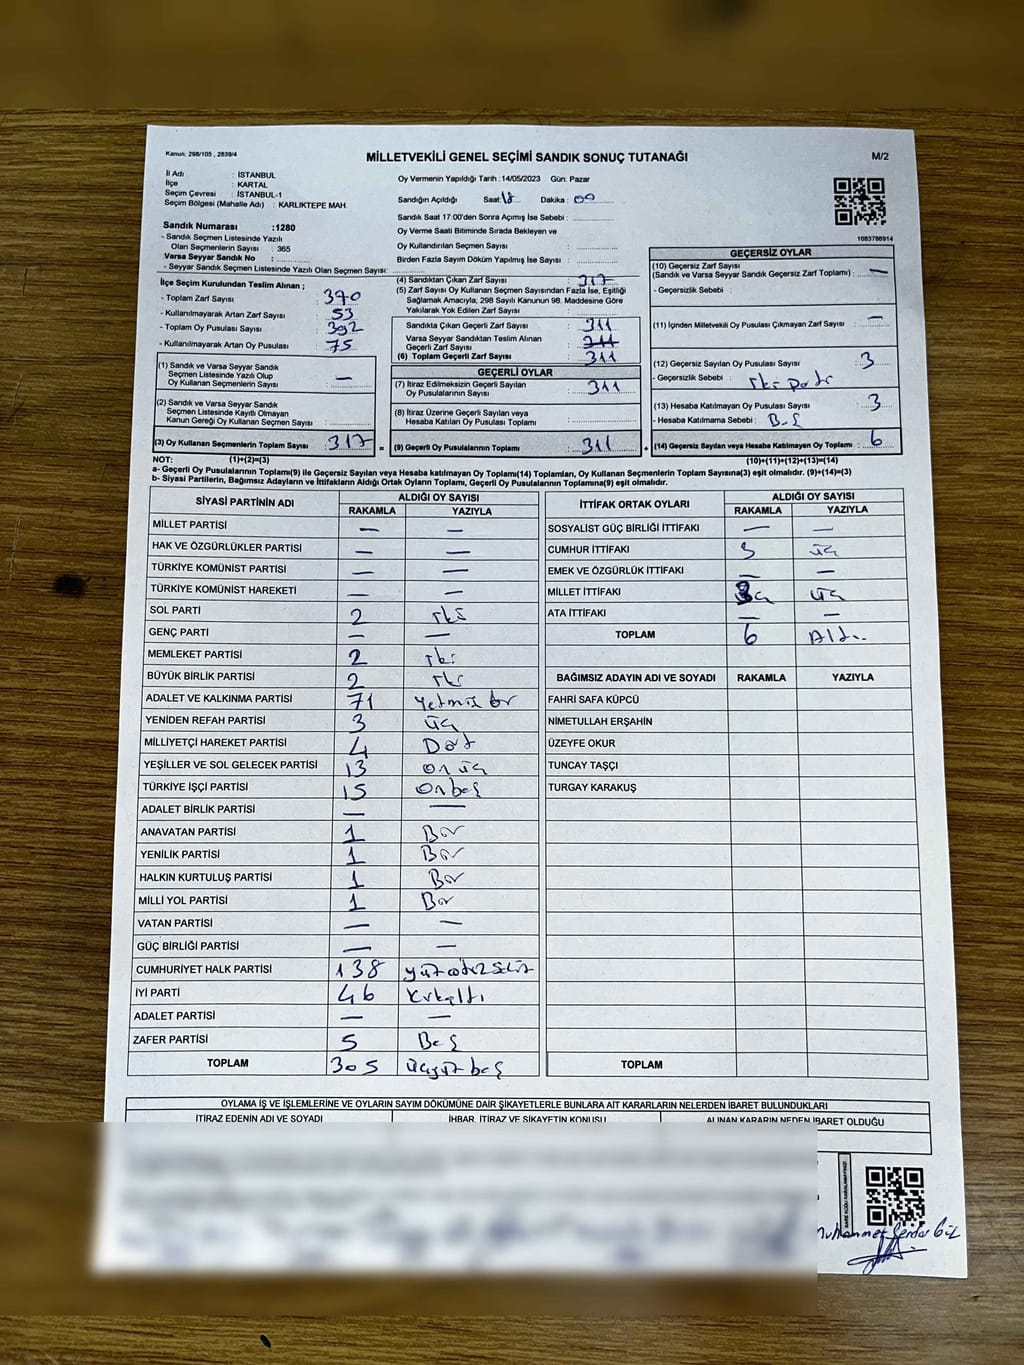 Kanun: 298/105 , 2839/4
MİLLETVEKİLİ GENEL SEÇİMİ SANDIK SONUÇ TUTANAĞI
M/2
İl Adı : İSTANBUL
İlçe : KARTAL
Seçim Çevresi : İSTANBUL-1
Seçim Bölgesi (Mahalle Adı) : KARLIKTEPE MAH.
Sandık Numarası :1280
- Sandık Seçmen Listesinde Yazılı
Olan Seçmenlerin Sayısı : 365
Varsa Seyyar Sandık No :
- Seyyar Sandık Seçmen Listesinde Yazılı Olan Seçmen Sayısı:
Oy Vermenin Yapıldığı Tarih :14/05/2023 Gün: Pazar
Sandığın Açıldığı Saat: 18 Dakika : 00
Sandık Saat 17:00'den Sonra Açılmış İse Sebebi :
Oy Verme Saati Bitiminde Sırada Bekleyen ve
Oy Kullandırılan Seçmen Sayısı :
Birden Fazla Sayım Döküm Yapılmış İse Sayısı :
1083786914
İlçe Seçim Kurulundan Teslim Alınan ;
- Toplam Zarf Sayısı : 370
- Kullanılmayarak Artan Zarf Sayısı : 53
- Toplam Oy Pusulası Sayısı : 392
- Kullanılmayarak Artan Oy Pusulası : 75
(1) Sandık ve Varsa Seyyar Sandık
Seçmen Listesinde Yazılı Olup
Oy Kullanan Seçmenlerin Sayısı : —
(2) Sandık ve Varsa Seyyar Sandık
Seçmen Listesinde Kayıtlı Olmayan
Kanun Gereği Oy Kullanan Seçmen Sayısı :
(3) Oy Kullanan Seçmenlerin Toplam Sayısı : 317
(4) Sandıktan Çıkan Zarf Sayısı : 317
(5) Zarf Sayısı Oy Kullanan Seçmen Sayısından Fazla İse, Eşitliği
Sağlamak Amacıyla; 298 Sayılı Kanunun 98. Maddesine Göre
Yakılarak Yok Edilen Zarf Sayısı :
Sandıkta Çıkan Geçerli Zarf Sayısı : 311
Varsa Seyyar Sandıktan Teslim Alınan
Geçerli Zarf Sayısı :
(6) Toplam Geçerli Zarf Sayısı : 311
GEÇERLİ OYLAR
(7) İtiraz Edilmeksizin Geçerli Sayılan
Oy Pusulalarının Sayısı : 311
(8) İtiraz Üzerine Geçerli Sayılan veya
Hesaba Katılan Oy Pusulası Toplamı :
= (9) Geçerli Oy Pusulalarının Toplamı : 311
GEÇERSİZ OYLAR
(10) Geçersiz Zarf Sayısı
(Sandık ve Varsa Seyyar Sandık Geçersiz Zarf Toplamı) : —
- Geçersizlik Sebebi :
(11) İçinden Milletvekili Oy Pusulası Çıkmayan Zarf Sayısı : —
(12) Geçersiz Sayılan Oy Pusulası Sayısı : 3
- Geçersizlik Sebebi : İki Parti
(13) Hesaba Katılmayan Oy Pusulası Sayısı : 3
- Hesaba Katılmama Sebebi : Boş
+ (14) Geçersiz Sayılan veya Hesaba Katılmayan Oy Toplamı : 6
NOT: (1)+(2)=(3) (10)+(11)+(12)+(13)=(14)
a- Geçerli Oy Pusulalarının Toplamı(9) ile Geçersiz Sayılan veya Hesaba katılmayan Oy Toplamı(14) Toplamları, Oy Kullanan Seçmenlerin Toplam Sayısına(3) eşit olmalıdır. (9)+(14)=(3)
b- Siyasi Partilerin, Bağımsız Adayların ve İttifakların Aldığı Ortak Oyların Toplamı, Geçerli Oy Pusulalarının Toplamına(9) eşit olmalıdır.
SİYASİ PARTİNİN ADI ALDIĞI OY SAYISI
RAKAMLA YAZIYLA
MİLLET PARTİSİ — —
HAK VE ÖZGÜRLÜKLER PARTİSİ — —
TÜRKİYE KOMÜNİST PARTİSİ — —
TÜRKİYE KOMÜNİST HAREKETİ — —
SOL PARTİ 2 İki
GENÇ PARTİ — —
MEMLEKET PARTİSİ 2 İki
BÜYÜK BİRLİK PARTİSİ 2 İki
ADALET VE KALKINMA PARTİSİ 71 Yetmiş bir
YENİDEN REFAH PARTİSİ 3 üç
MİLLİYETÇİ HAREKET PARTİSİ 4 Dört
YEŞİLLER VE SOL GELECEK PARTİSİ 13 on üç
TÜRKİYE İŞÇİ PARTİSİ 15 Onbeş
ADALET BİRLİK PARTİSİ — —
ANAVATAN PARTİSİ 1 Bir
YENİLİK PARTİSİ 1 Bir
HALKIN KURTULUŞ PARTİSİ 1 Bir
MİLLİ YOL PARTİSİ 1 Bir
VATAN PARTİSİ — —
GÜÇ BİRLİĞİ PARTİSİ — —
CUMHURİYET HALK PARTİSİ 138 yüzotuzsekiz
İYİ PARTİ 46 Kırkaltı
ADALET PARTİSİ — —
ZAFER PARTİSİ 5 Beş
TOPLAM 305 üçyüz beş
İTTİFAK ORTAK OYLARI ALDIĞI OY SAYISI
RAKAMLA YAZIYLA
SOSYALİST GÜÇ BİRLİĞİ İTTİFAKI — —
CUMHUR İTTİFAKI 3 üç
EMEK VE ÖZGÜRLÜK İTTİFAKI — —
MİLLET İTTİFAKI 3 üç
ATA İTTİFAKI —
TOPLAM 6 Altı
BAĞIMSIZ ADAYIN ADI VE SOYADI RAKAMLA YAZIYLA
FAHRİ SAFA KÜPCÜ
NİMETULLAH ERŞAHİN
ÜZEYFE OKUR
TUNCAY TAŞÇI
TURGAY KARAKUŞ
TOPLAM
OYLAMA İŞ VE İŞLEMLERİNE VE OYLARIN SAYIM DÖKÜMÜNE DAİR ŞİKAYETLERLE BUNLARA AİT KARARLARIN NELERDEN İBARET BULUNDUKLARI
İTİRAZ EDENİN ADI VE SOYADI İHBAR, İTİRAZ VE ŞİKAYETİN KONUSU ALINAN KARARIN NEDEN İBARET OLDUĞU
KARE KODU KARALAMAYINIZ!
Muhammet Serdar Gül